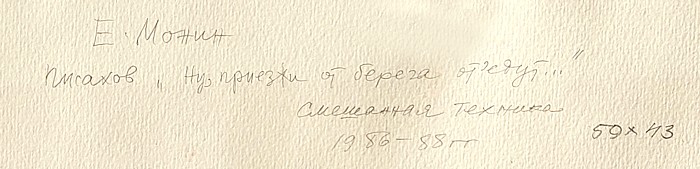 Е. Монин
Писахов „Ну, приезжи от берега от'едут..."
Смешанная техника
1986-88гг
59 x 43